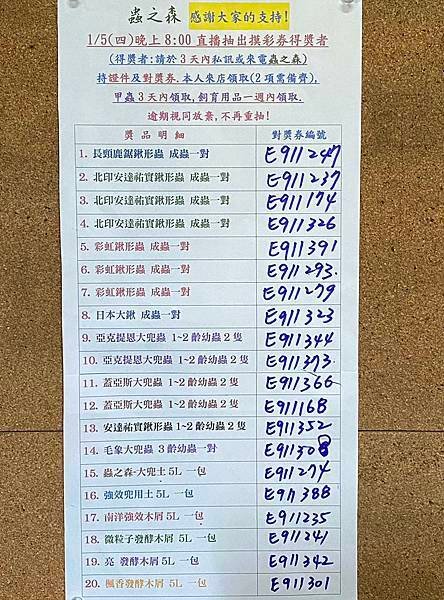 蟲之森 感謝大家的支持!
1/5(四)晚上 8:00 直播抽出摸彩券得獎者
(得獎者:請於 3天內私訊或來電蟲之森)
持證件及對獎券.本人來店領取(2項需備齊).
甲蟲3天內領取,飼育用品一週內領取.
逾期視同放棄,不再重抽!
獎 品 明 細 對獎券編號
1. 長頸鹿鋸鍬形蟲 成蟲一對 E911247
2. 北印安達祐實鍬形蟲 成蟲一對 E911237
3. 北印安達祐實鍬形蟲 成蟲一對 E911174
4. 北印安達祐實鍬形蟲 成蟲一對 E911326
5. 彩虹鍬形蟲 成蟲一對 E911391
6. 彩虹鍬形蟲 成蟲一對 E911293.
7. 彩虹鍬形蟲 成蟲一對 E911279
8. 日本大鍬 成蟲一對 E911323
9. 亞克提恩大兜蟲 1~2齡幼蟲2隻 E911344
10. 亞克提恩大兜蟲 1~2齡幼蟲2隻 E911373.
11. 蓋亞斯大兜蟲 1~2齡幼蟲2隻 E911366
12. 蓋亞斯大兜蟲 1~2齡幼蟲2隻 E911168
13. 安達祐實鍬形蟲 1~2齡幼蟲2隻 E911352
14. 毛象大兜蟲 3齡幼蟲一對 E911308
15. 蟲之森-大兜土 5L 一包 E911274
16. 強效兜用土 5L 一包 E911388
17. 南洋強效木屑 5L 一包 E911235
18. 微粒子發酵木屑 5L 一包 E911241
19. 亮 發酵木屑 5L 一包 E911342
20. 楓香發酵木屑 5L 一包 E911301